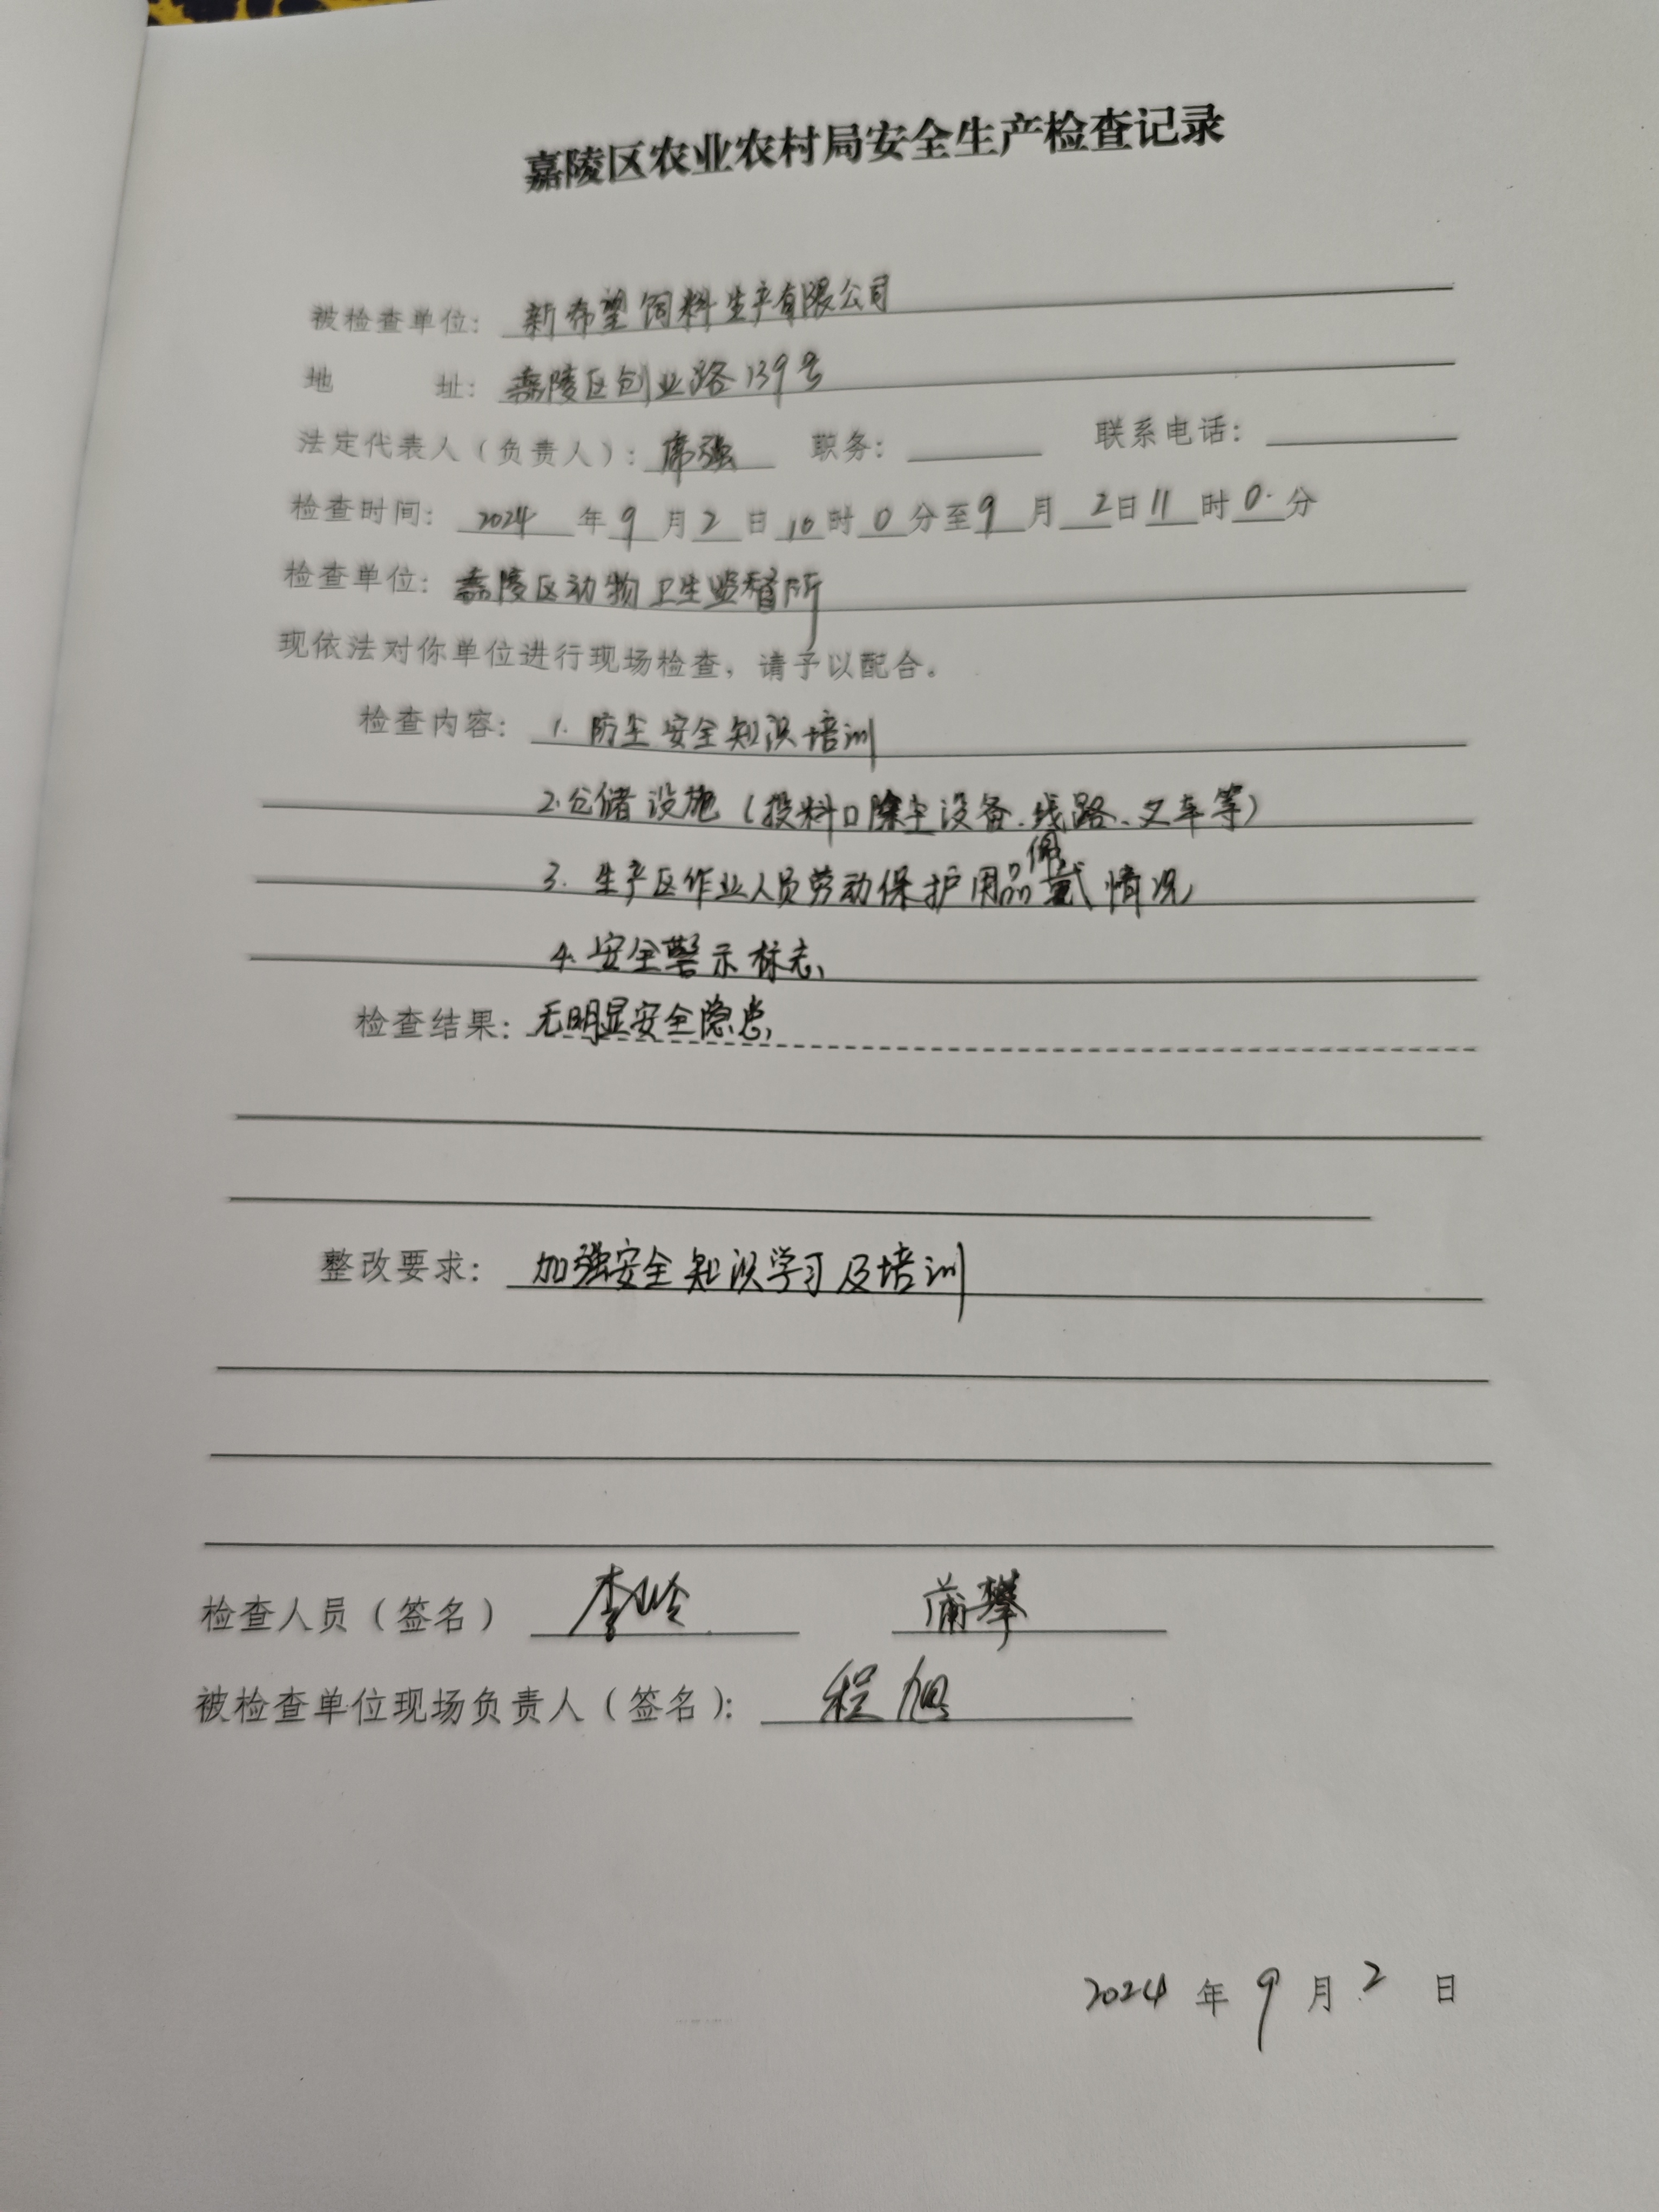 嘉陵区农业农村局安全生产检查记录
被检查单位: 新希望饲料生产有限公司
地 址: 嘉陵区创业路139号
法定代表人(负责人): 席强 职务: 联系电话:
检查时间: 2024 年 9 月 2 日 10 时 0 分至 9 月 2 日 11 时 0 分
检查单位: 嘉陵区动物卫生监督所
现依法对你单位进行现场检查,请予以配合。
检查内容: 1. 防尘安全知识培训
2. 仓储设施(投料口除尘设备、线路、叉车等)
3. 生产区作业人员劳动保护用品佩戴情况
4. 安全警示标志
检查结果: 无明显安全隐患
整改要求: 加强安全知识学习及培训
检查人员(签名) 李岭 蒲攀
被检查单位现场负责人(签名): 程旭
2024 年 9 月 2 日